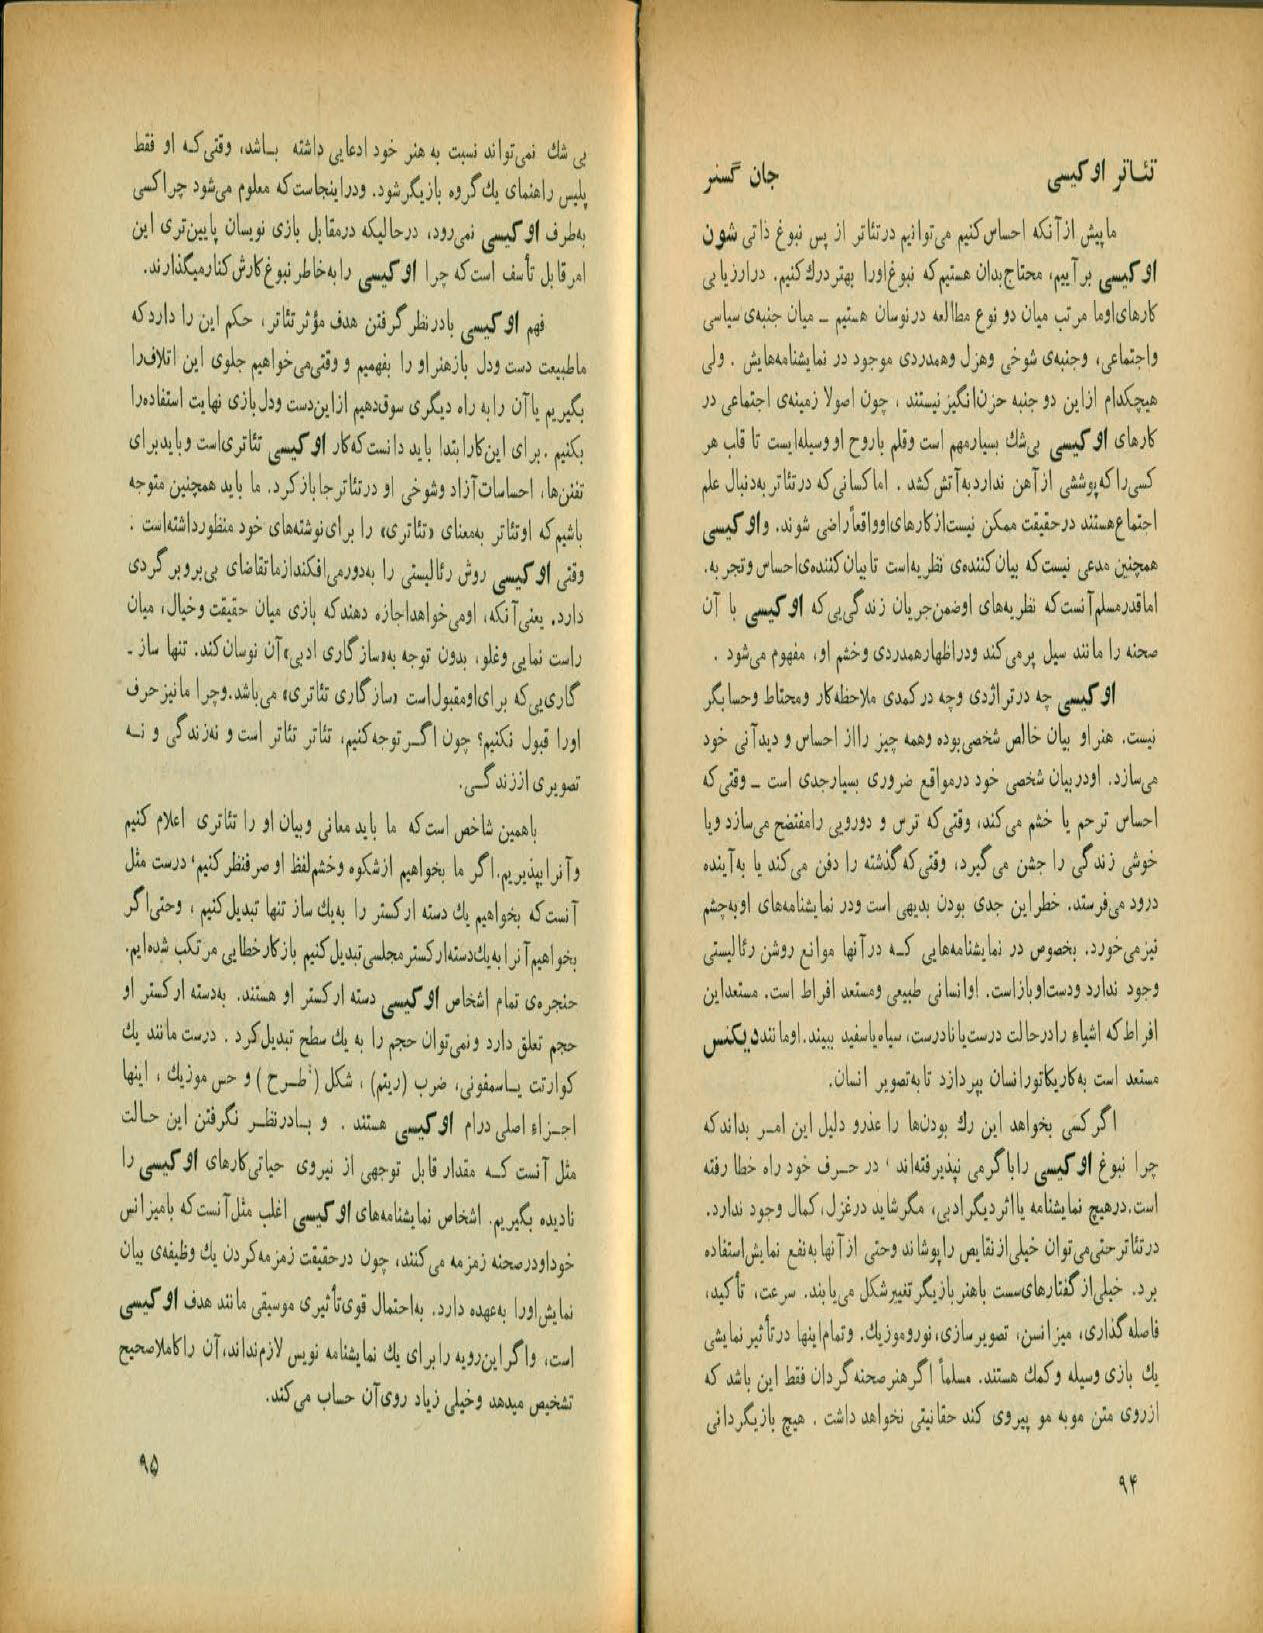 تئـاتر اوکیسی
جان گسنر
ماپیش ازآنکه احساس‌کنیم می‌توانیم درتئاتر از پس نبوغ ذاتی شون
اوکیسی برآییم، محتاج‌بدان هستیم‌که نبوغ‌اورا بهتردرك‌کنیم. درارزیابی
کارهای‌اوما مرتب میان دو نوع مطالعه درنوسان هستیم ــ میان جنبه‌ی سیاسی
واجتماعی، وجنبه‌ی شوخی وهزل وهمدردی موجود در نمایشنامه‌هایش . ولی
هیچکدام ازاین دوجنبه حزن‌انگیز نیستند ، چون اصولا زمینه‌ی اجتماعی در
کارهای اوکیسی بی‌شك بسیارمهم است وقلم باروح او وسیله‌ایست تا قاب هر
کسی‌راکه‌پوششی ازآهن نداردبه‌آتش‌کشد . اماکسانی‌که درتئاتر به‌دنبال علم
اجتماع‌هستند درحقیقت ممکن نیست‌ازکارهای‌اوواقعاً راضی شوند. واوکیسی
همچنین مدعی نیست‌که بیان‌کننده‌ی نظریه‌است تابیان‌کننده‌ی‌احساس وتجربه.
اماقدرمسلم‌آنست‌که نظریه‌های اوضمن‌جریان زندگی‌یی‌که اوکیسی با آن
صحنه را مانند سیل پرمی‌کند ودراظهارهمدردی وخشم او، مفهوم می‌شود .
اوکیسی چه درتراژدی وچه درکمدی ملاحظه‌کار ومحتاط وحسابگر
نیست. هنراو بیان خالص شخصی‌بوده وهمه چیز رااز احساس و دیدآنی خود
می‌سازد. اودربیان شخصی خود درمواقع ضروری بسیارجدی است ــ وقتی‌که
احساس ترحم یا خشم می‌کند، وقتی‌که ترس و دورویی رامفتضح می‌سازد ویا
خوشی زندگی را جشن می‌گیرد، وقتی‌که گذشته را دفن می‌کند یا به‌آینده
درود می‌فرستد. خطراین جدی بودن بدیهی است ودر نمایشنامه‌های اوبه‌چشم
نیزمی‌خورد. بخصوص در نمایشنامه‌هایی کـه درآنها موانع روشن رئالیستی
وجود ندارد ودست‌اوبازاست. اوانسانی طبیعی ومستعد افراط است. مستعداین
افراط‌که اشیاء رادرحالت درست‌یانادرست، سیاه‌یاسفید ببیند.اومانند دیکنس
مستعد است به‌کاریکاتورانسان بپردازد تابه‌تصویر انسان.
اگرکسی بخواهد این رك بودن‌ها را عذرو دلیل این امـر بداندکه
چرا نبوغ اوکیسی راباگرمی نپذیرفته‌اند ، در حـرف خود راه خطا رفته
است.درهیچ نمایشنامه یااثردیگرادبی، مگرشاید درغزل، کمال وجود ندارد.
درتئاترحتی‌می‌توان خیلی‌ازنقایص راپوشاند وحتی ازآنهابه‌نفع نمایش‌استفاده
برد. خیلی‌ازگفتارهای‌سست باهنربازیگرتغییرشکل می‌یابند. سرعت، تأکید،
فاصله‌گذاری، میزانسن، تصویرسازی،نوروموزیك. وتمام‌اینها درتأثیرنمایشی
یك بازی وسیله وکمك هستند. مسلماً اگرهنرصحنه‌گردان فقط این باشد که
ازروی متن موبه مو پیروی کند حقانیتی نخواهد داشت . هیچ بازیگردانی
۹۴
بی شك نمی‌تواند نسبت به هنر خود ادعایی داشته بـاشد، وقتی‌کـه او فقط
پلیس راهنمای یك‌گروه بازیگرشود. ودراینجاست‌که معلوم می‌شود چراکسی
به‌طرف اوکیسی نمی‌رود، درحالیکه درمقابل بازی نویسان پایین‌تری این
امرقابل تأسف است‌که چرا اوکیسی رابه‌خاطر نبوغ‌کارش‌کنارمیگذارند.
فهم اوکیسی بادرنظرگرفتن هدف مؤثرتئاتر، حکم این را داردکه
ماطبیعت دست ودل بازهنراو را بفهمیم و وقتی‌می‌خواهیم جلوی این اتلاف‌را
بگیریم یاآن رابه راه دیگری سوق‌دهیم ازاین‌دست ودل‌بازی نهایت استفاده‌را
بکنیم .برای این‌کارابتدا باید دانست‌که‌کار اوکیسی تئاتری‌است وبایدبرای
تفنن‌ها، احساسات‌آزاد وشوخی او درتئاترجابازکرد. ما باید همچنین متوجه
باشیم‌که اوتئاتر به‌معنای «تئاتری» را برای‌نوشته‌های خود منظورداشته‌است :
وقتی اوکیسی روش رئالیستی را به‌دورمی‌افکندازماتقاضای بی‌بروبرگردی
دارد. یعنی‌آنکه، اومی‌خواهداجازه دهندکه بازی میان حقیقت وخیال، میان
راست نمایی وغلو، بدون توجه به«سازگاری ادبی»آن نوسان‌کند. تنها ساز ـ
گاری‌یی‌که برای‌اومقبول‌است «سازگاری تئاتری» می‌باشد.وچرا مانیزحرف
اورا قبول نکنیم؟ چون اگـر توجه‌کنیم، تئاتر تئاتر است و نه‌زندگی و نـه
تصویری اززندگـی.
باهمین شاخص است‌که ما باید معانی وبیان او را تئاتری اعلام کنیم
وآنرابپذیریم.اگر ما بخواهیم ازشکوه وخشم‌لفظ او صرفنظرکنیم، درست مثل
آنست‌که بخواهیم یك دسته ارکستر را به‌یك ساز تنها تبدیل‌کنیم ، وحتی‌اگر
بخواهیم‌آنرابه‌یك‌دسته‌ارکسترمجلسی‌تبدیل‌کنیم بازکارخطایی مرتکب شده‌ایم.
حنجره‌ی تمام اشخاص اوکیسی دسته ارکستر او هستند. به‌دسته ارکستر او
حجم تعلق دارد ونمی‌توان حجم را به یك سطح تبدیل‌کرد . درست مانند یك
کوارتت یـاسمفونی، ضرب (ریتم) ، شکل (طـرح) و حس موزیك ، اینها
اجـزاء اصلی درام اوکیسی هستند . و بـادرنظـر نگرفتن این حـالت
مثل آنست کـه مقدار قابل توجهی از نیروی حیاتی‌کارهای اوکیسی را
نادیده بگیریم. اشخاص نمایشنامه‌های اوکیسی اغلب مثل‌آنست‌که بامیزانس
خوداودرصحنه زمزمه می‌کنند، چون درحقیقت زمزمه‌کردن یك وظیفه‌ی بیان
نمایش‌اورا به‌عهده دارد. به‌احتمال قوی‌تأثیری موسیقی مانند هدف اوکیسی
است، واگراین‌رویه رابرای یك نمایشنامه نویس لازم‌نداند،آن راکاملاصحیح
تشخیص میدهد وخیلی زیاد روی‌آن حساب می‌کند.
۹۵